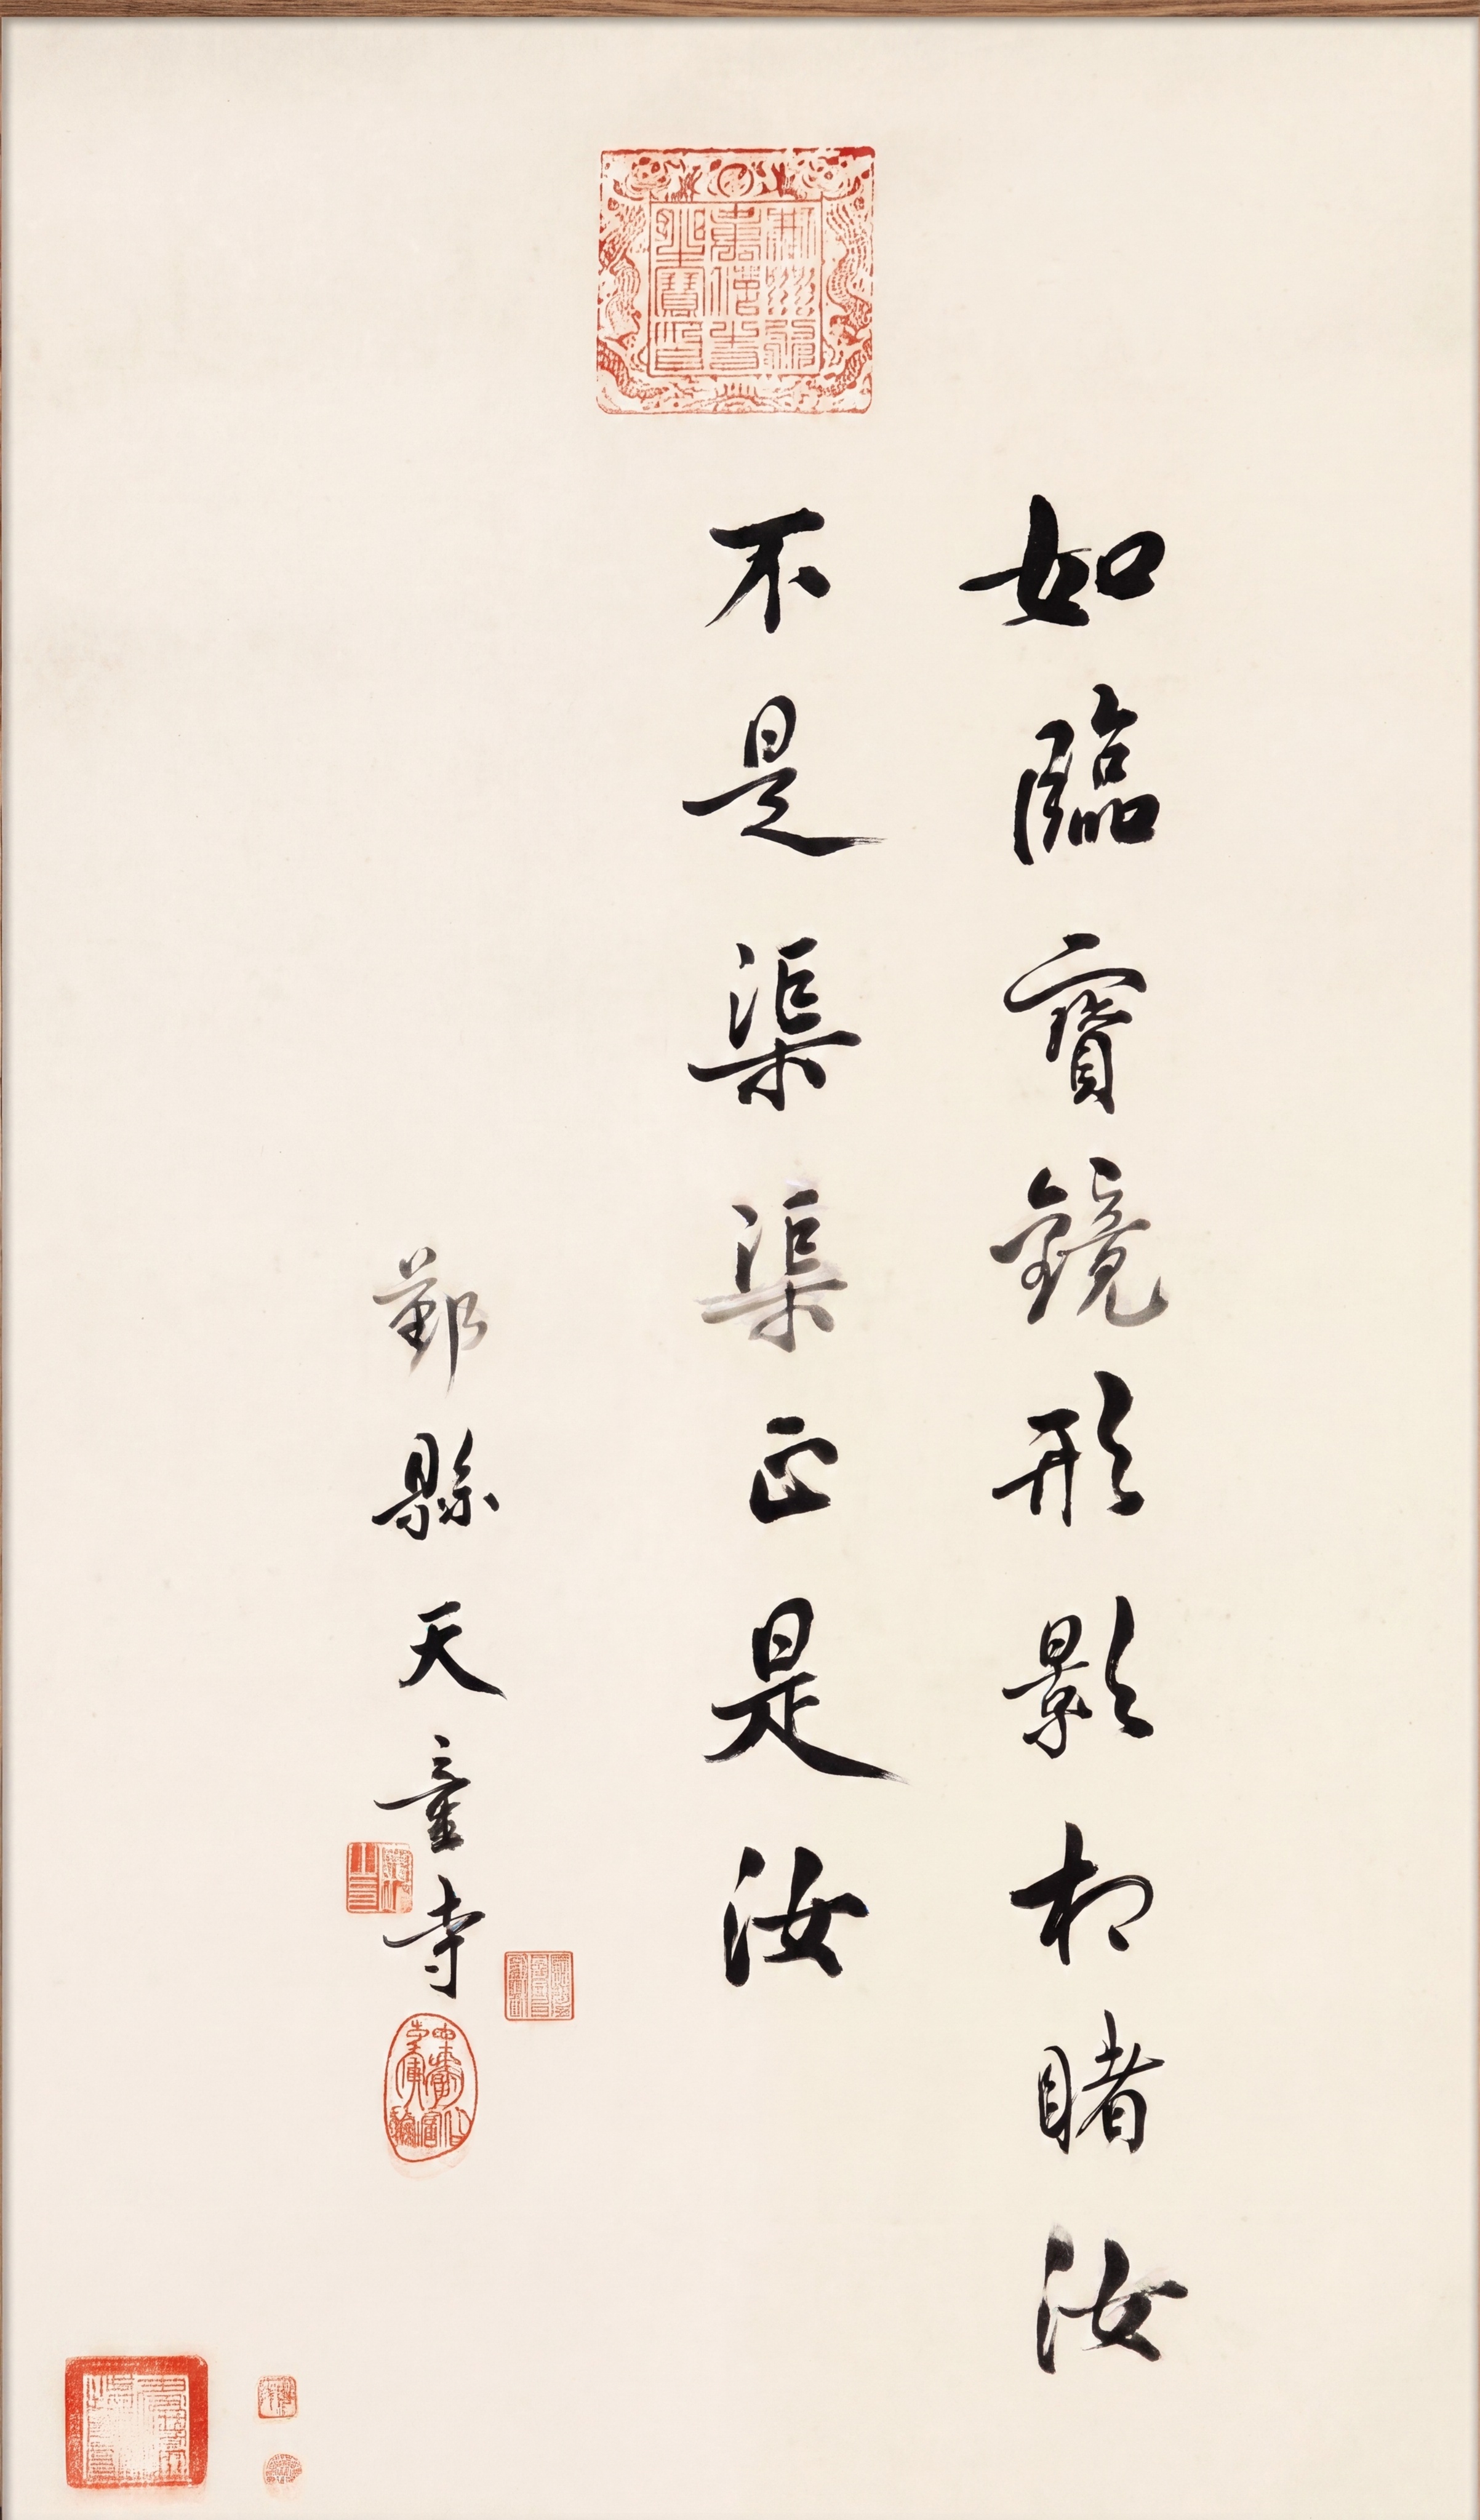 如臨寶鏡形影相睹汝
不是渠渠正是汝
鄞縣天童寺